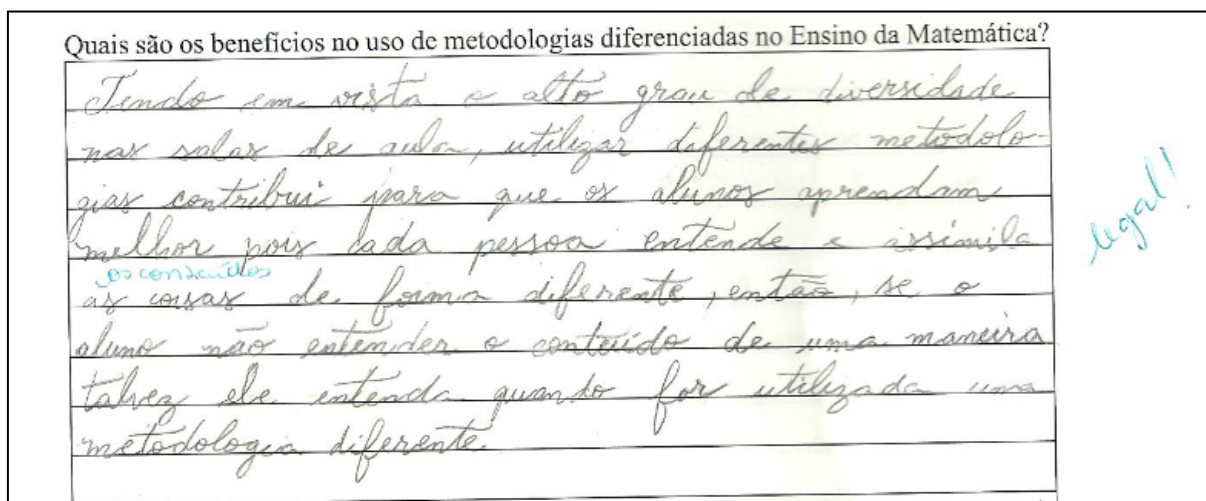 Quais são os benefícios no uso de metodologias diferenciadas no Ensino da Matemática?
Tendo em vista o alto grau de diversidade
nas salas de aula, utilizar diferentes metodolo-
gias contribui para que os alunos aprendam
melhor pois cada pessoa entende e assimila
os conteúdos
as coisas de forma diferente, então, se o
aluno não entender o conteúdo de uma maneira
talvez ele entenda quando for utilizada uma
metodologia diferente.
legal!